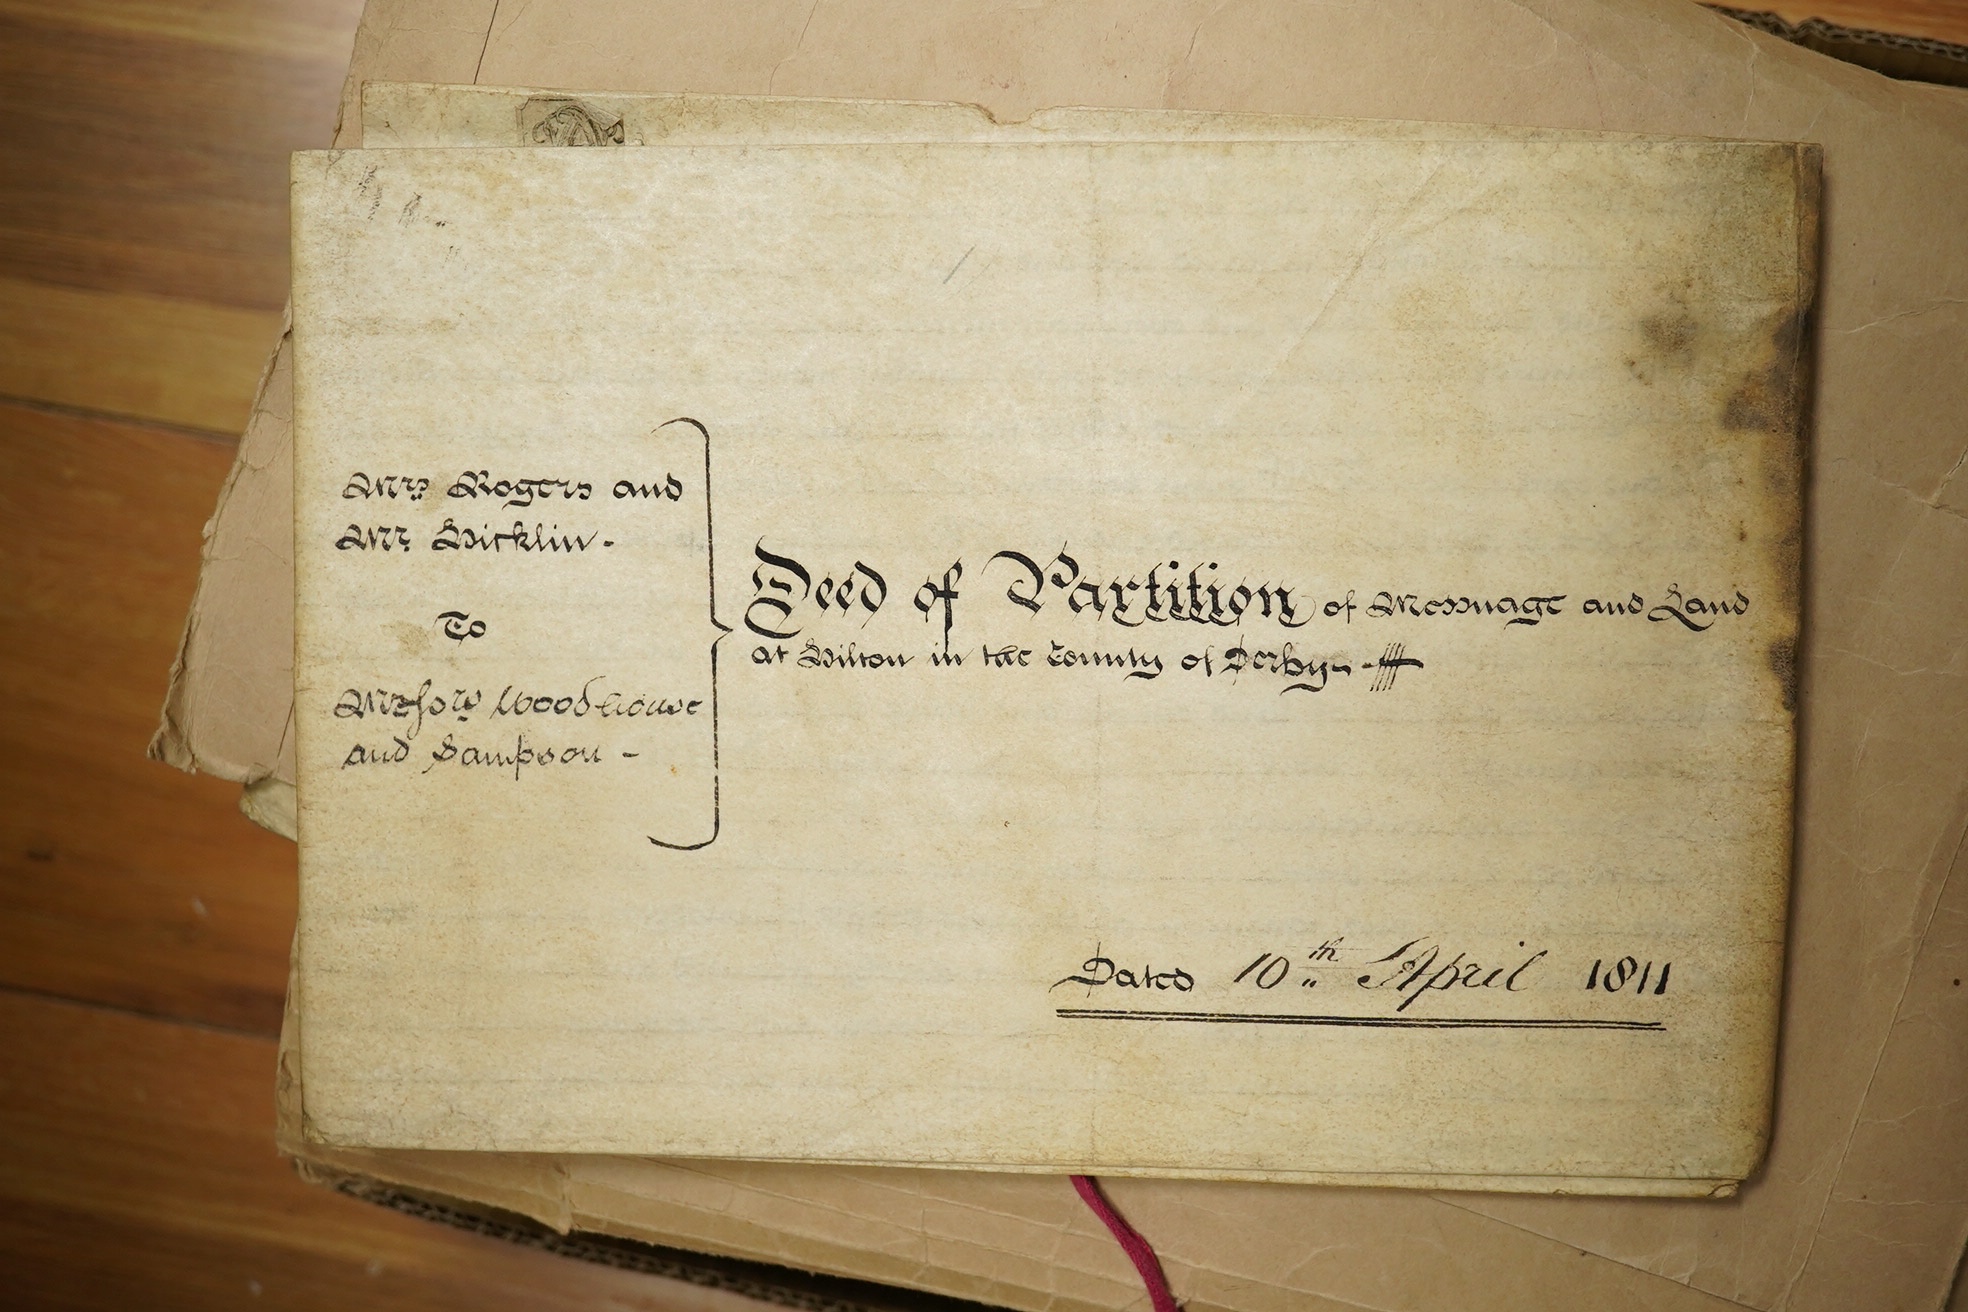 Mrs Rogers and
Mr Hicklin -
To
Messrs Woodhouse
and Sampson -
Deed of Partition of Messuage and Land
at Hilton in the County of Derby -
Dated 10th April 1811